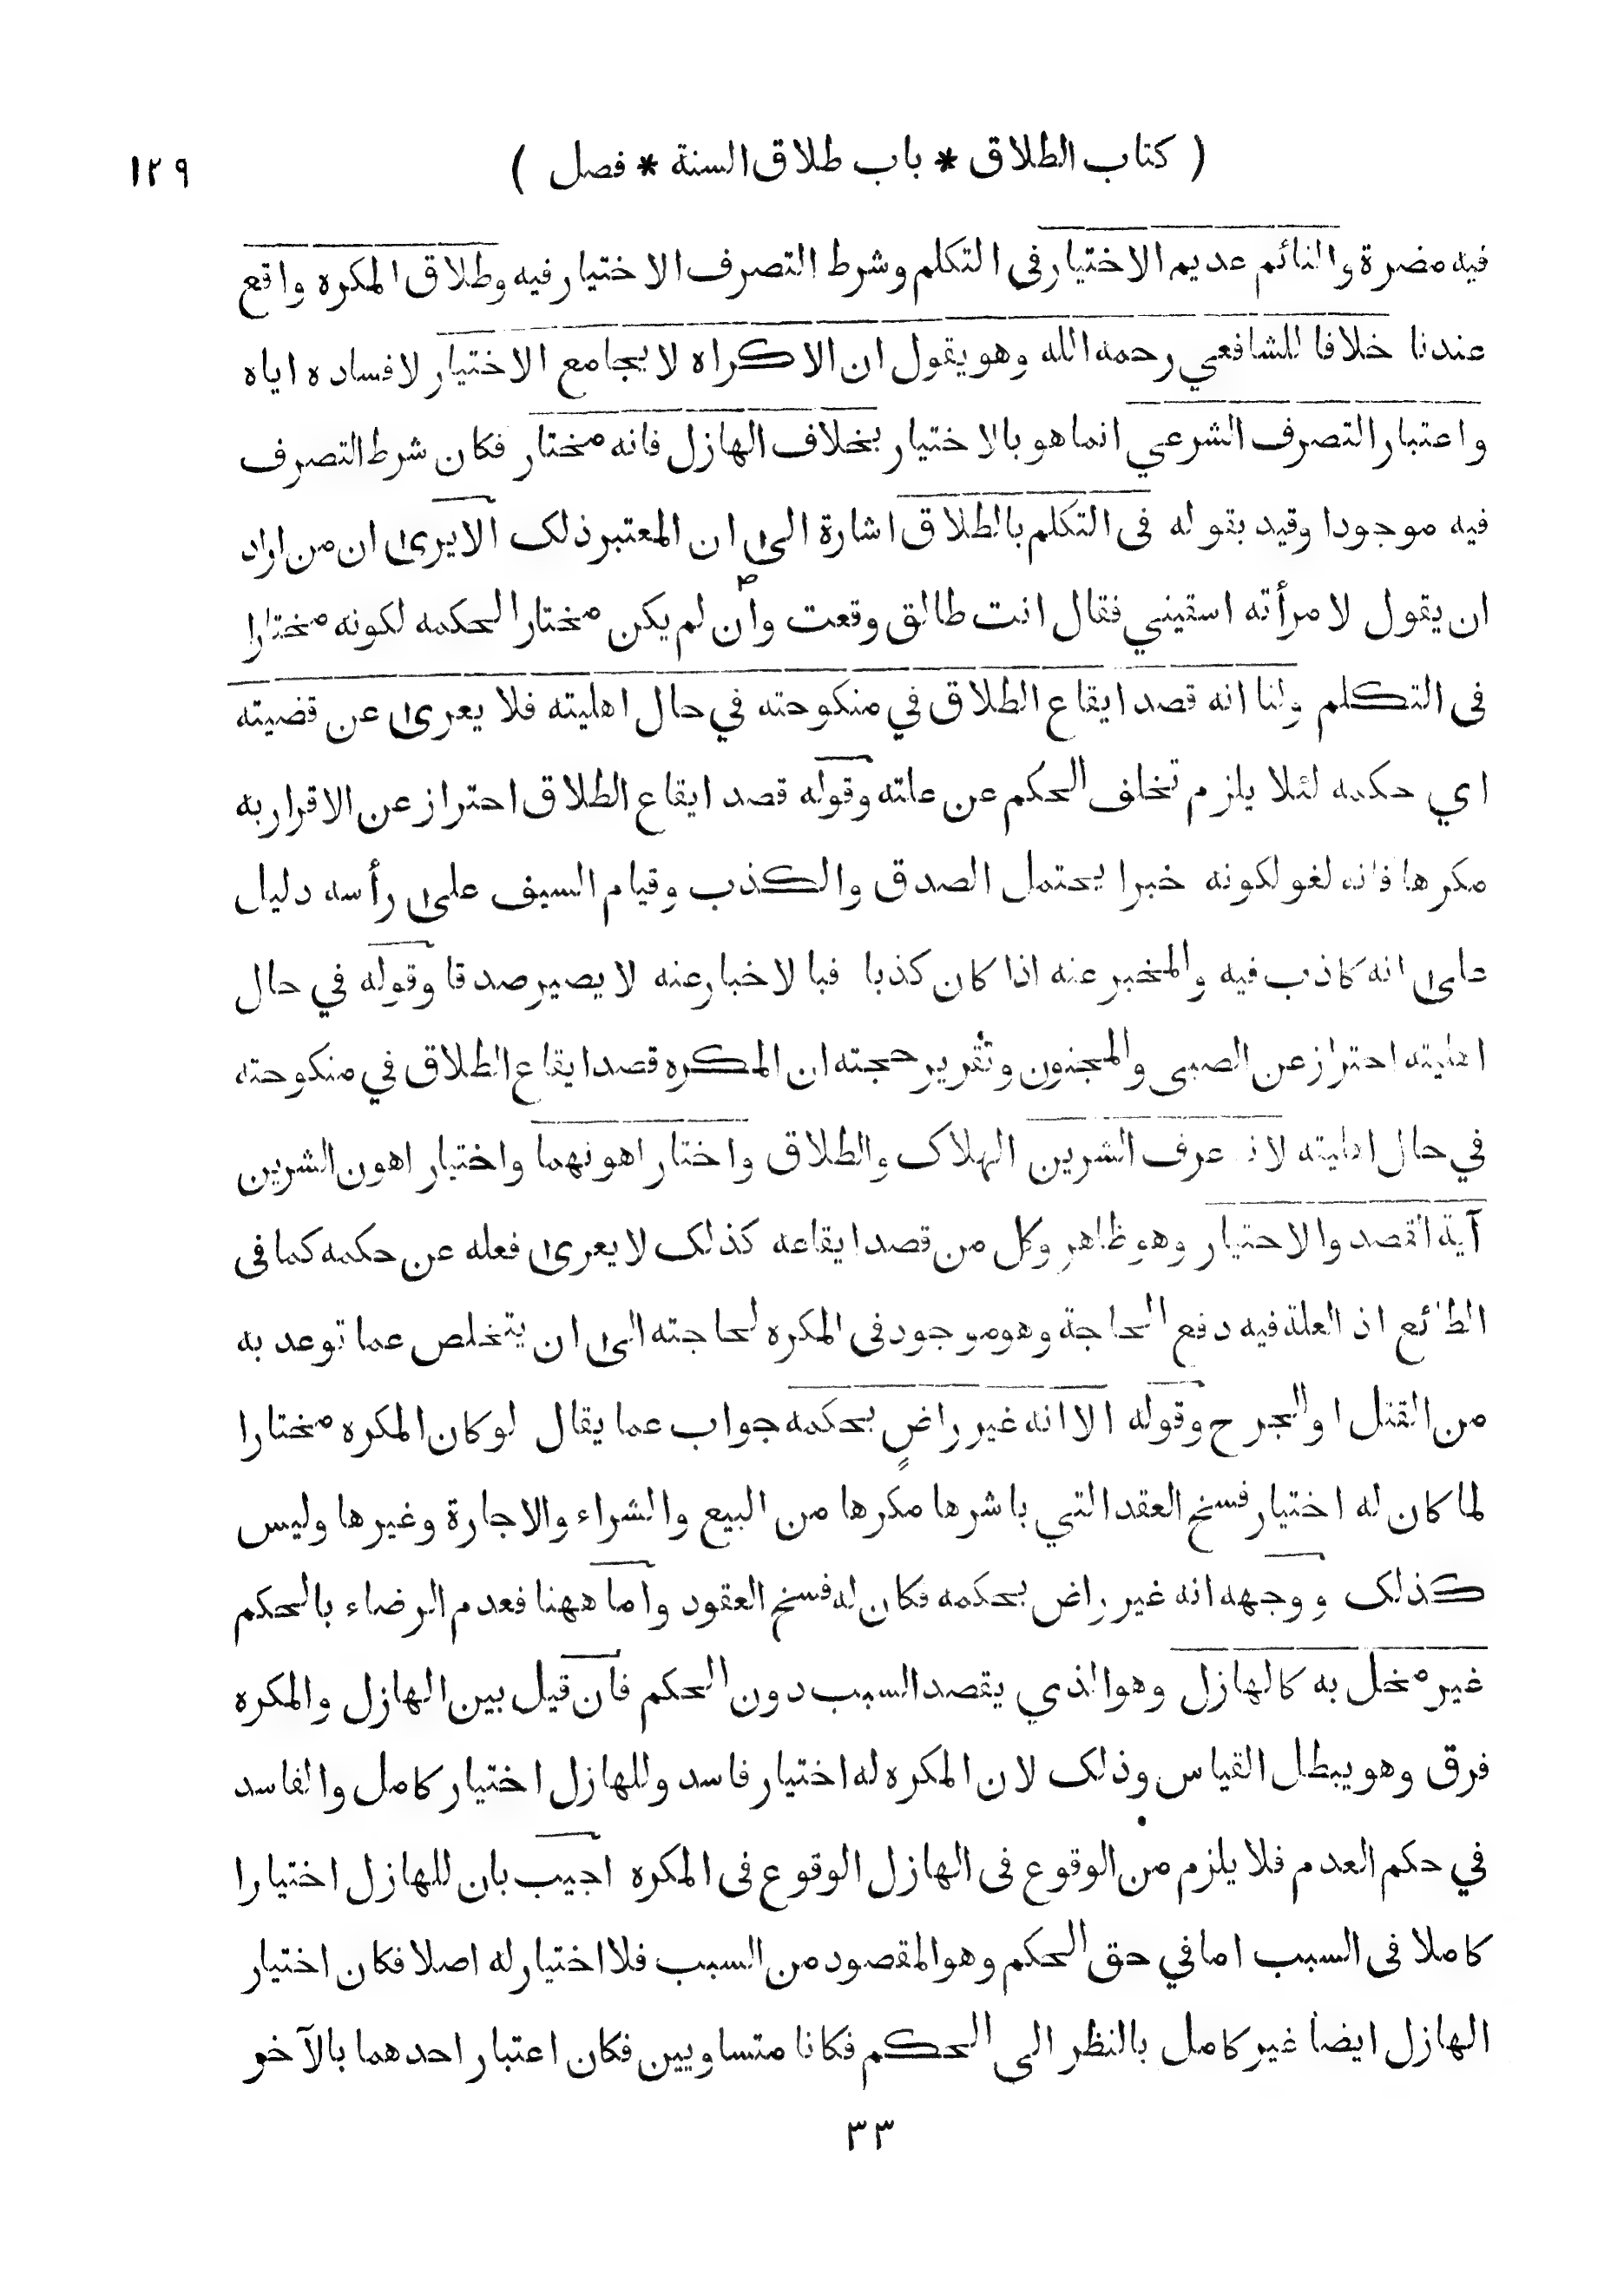 ( كتاب الطلاق * باب طلاق السنة * فصل ) ١٢٩
فيه مضرة والنائم عديم الاختيار فى التكلم وشرط التصرف الاختيار فيه وطلاق المكره واقع
عندنا خلافا للشافعي رحمه الله وهو يقول ان الاكراه لا يجامع الاختيار لافساده اياه
واعتبار التصرف الشرعي انما هو بالاختيار بخلاف الهازل فانه مختار فكان شرط التصرف
فيه موجودا وقيد بقوله فى التكلم بالطلاق اشارة الى ان المعتبر ذلك الا يرى ان من اراد
ان يقول لامرأته اسقيني فقال انت طالق وقعت وان لم يكن مختارا لحكمه لكونه مختارا
فى التكلم ولنا انه قصد ايقاع الطلاق في منكوحته في حال اهليته فلا يعرى عن قضيته
اي حكمه لئلا يلزم تخلف الحكم عن علته وقوله قصد ايقاع الطلاق احتراز عن الاقرار به
مكرها فانه لغو لكونه خبرا يحتمل الصدق والكذب وقيام السيف على رأسه دليل
على انه كاذب فيه والمخبر عنه اذا كان كذبا فبالاخبار عنه لا يصير صدقا وقوله في حال
اهليته احتراز عن الصبى والمجنون وتقرير حجته ان المكره قصد ايقاع الطلاق في منكوحته
في حال اهليته لانه عرف الشرين الهلاك والطلاق واختار اهونهما واختيار اهون الشرين
آية القصد والاختيار وهو ظاهر وكل من قصد ايقاعه كذلك لا يعرى فعله عن حكمه كما فى
الطائع اذ العلة فيه دفع الحاجة وهو موجود فى المكره لحاجته الى ان يتخلص عما توعد به
من القتل او الجرح وقوله الا انه غير راضٍ بحكمه جواب عما يقال لو كان المكره مختارا
لما كان له اختيار فسخ العقد التي باشرها مكرها من البيع والشراء والاجارة وغيرها وليس
كذلك ووجهه انه غير راض بحكمه فكان له فسخ العقود واما ههنا فعدم الرضاء بالحكم
غير مخل به كالهازل وهو الذي يقصد السبب دون الحكم فان قيل بين الهازل والمكره
فرق وهو يبطل القياس وذلك لان المكره له اختيار فاسد وللهازل اختيار كامل والفاسد
في حكم العدم فلا يلزم من الوقوع فى الهازل الوقوع فى المكره اجيب بان للهازل اختيارا
كاملا فى السبب اما في حق الحكم وهو المقصود من السبب فلا اختيار له اصلا فكان اختيار
الهازل ايضا غير كامل بالنظر الى الحكم فكانا متساويين فكان اعتبار احدهما بالآخر
٣٣